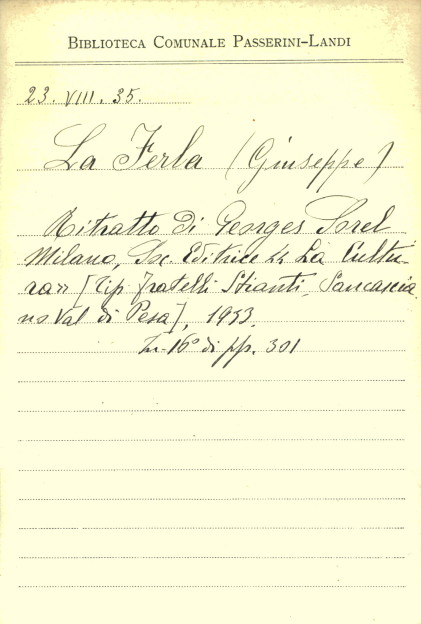 BIBLIOTECA COMUNALE PASSERINI-LANDI
23. VIII. 35.
La Ferla (Giuseppe)
Ritratto di Georges Sorel
Milano, Soc. Editrice « La Cultu-
ra» [Tip. Fratelli Stianti, Sancascia
no Val di Pesa], 1933.
In-16° di pp. 301